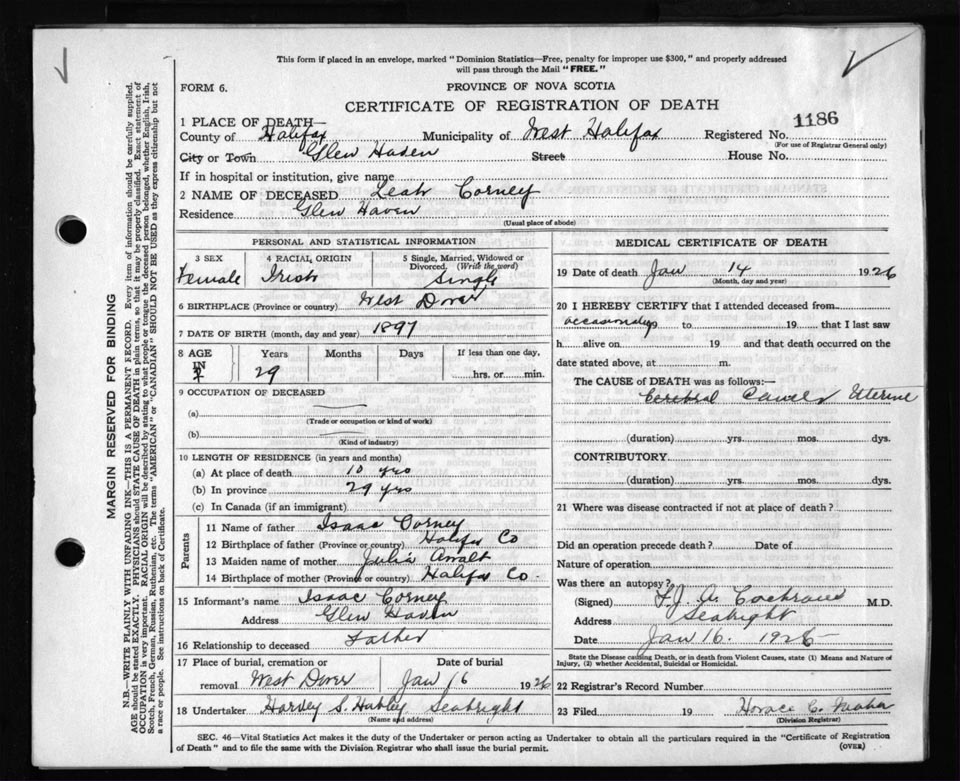 This form if placed in an envelope, marked "Dominion Statistics—Free, penalty for improper use $300," and properly addressed
will pass through the Mail "FREE."
FORM 6.
PROVINCE OF NOVA SCOTIA
CERTIFICATE OF REGISTRATION OF DEATH
1 PLACE OF DEATH—
County of Halifax Municipality of West Halifax Registered No. 1186
(For use of Registrar General only)
City or Town Glen Haven Street House No.
If in hospital or institution, give name
2 NAME OF DECEASED Leah Corney
Residence Glen Haven
(Usual place of abode)
PERSONAL AND STATISTICAL INFORMATION
3 SEX Female
4 RACIAL ORIGIN Irish
5 Single, Married, Widowed or Divorced. (Write the word) Single
6 BIRTHPLACE (Province or country) West Dover
7 DATE OF BIRTH (month, day and year) 1897
8 AGE IN Years Months Days If less than one day,
29 hrs. or min.
9 OCCUPATION OF DECEASED
(a)
(Trade or occupation or kind of work)
(b)
(Kind of industry)
10 LENGTH OF RESIDENCE (in years and months)
(a) At place of death 10 yrs
(b) In province 29 yrs
(c) In Canada (if an immigrant)
Parents
11 Name of father Isaac Corney
12 Birthplace of father (Province or country) Halifax Co
13 Maiden name of mother Julia
14 Birthplace of mother (Province or country) Halifax Co.
15 Informant's name Isaac Corney
Address Glen Haven
16 Relationship to deceased Father
17 Place of burial, cremation or removal West Dover
Date of burial Jan 16 1926
18 Undertaker Harvey S. Hubley Seabright
(Name and address)
MEDICAL CERTIFICATE OF DEATH
19 Date of death Jan 14 1926
(Month, day and year)
20 I HEREBY CERTIFY that I attended deceased from
occasionally to 19 that I last saw
h alive on 19 and that death occurred on the
date stated above, at m.
The CAUSE OF DEATH was as follows:—
Uterine
(duration) yrs. mos. dys.
CONTRIBUTORY
(duration) yrs. mos. dys.
21 Where was disease contracted if not at place of death?
Did an operation precede death? Date of
Nature of operation
Was there an autopsy?
(Signed) Cochrane M.D.
Address Seabright
Date Jan 16. 1926
State the Disease causing Death, or in death from Violent Causes, state (1) Means and Nature of
Injury, (2) whether Accidental, Suicidal or Homicidal.
22 Registrar's Record Number
23 Filed 19 Horace C.
(Division Registrar)
SEC. 46—Vital Statistics Act makes it the duty of the Undertaker or person acting as Undertaker to obtain all the particulars required in the "Certificate of Registration
of Death" and to file the same with the Division Registrar who shall issue the burial permit.
(OVER)
MARGIN RESERVED FOR BINDING
N.B.—WRITE PLAINLY WITH UNFADING INK—THIS IS A PERMANENT RECORD. Every item of information should be carefully supplied.
AGE should be stated EXACTLY. PHYSICIANS should STATE CAUSE OF DEATH in plain terms, so that it may be properly classified. Exact statement of
OCCUPATION is very important. RACIAL ORIGIN will be described by stating to what people or tongue the deceased person belonged, whether English, Irish,
Scotch, French, German, Russian, Ruthenian, etc. The terms "AMERICAN" or "CANADIAN" SHOULD NOT BE USED as they express citizenship but not
a race or people. See instructions on back of Certificate.